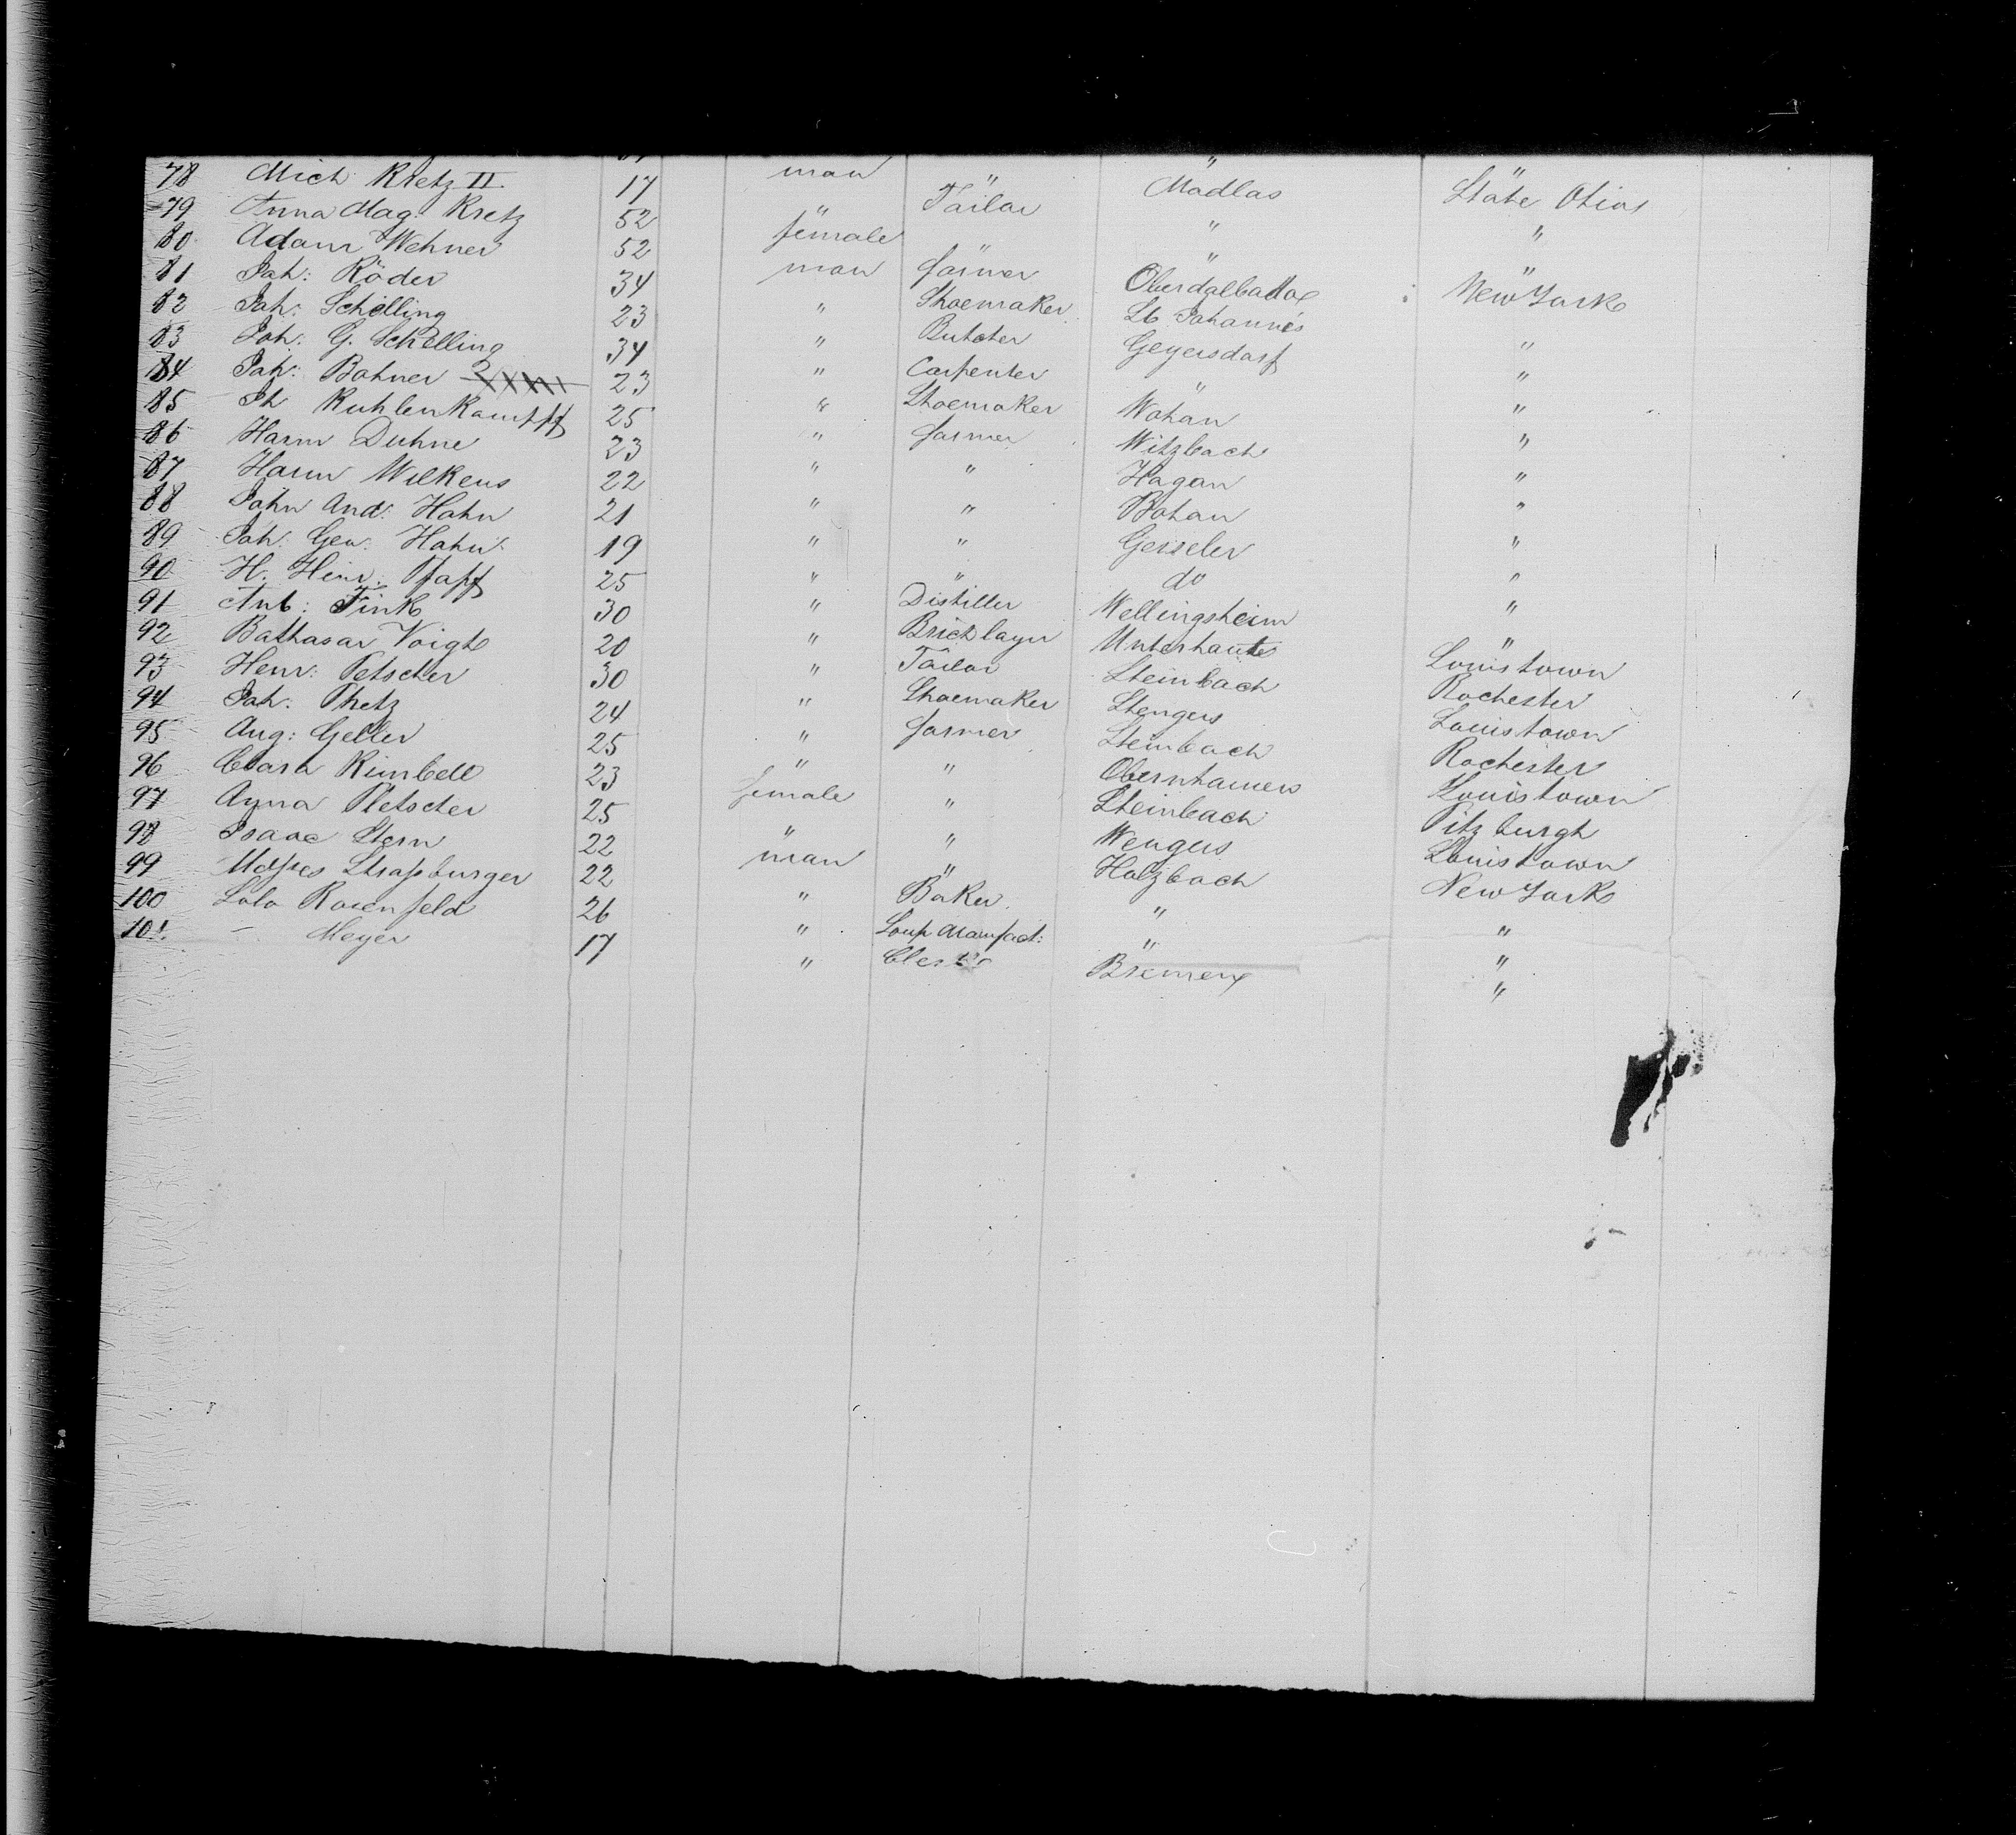 78 Mich Kretz II. 17 " Tailor Mädlas State Ohio
79 Anna Mag: Kretz 52 female " "
80 Adam Wehner 52 man farmer " "
81 Joh: Röder 34 " Shoemaker Oberdalbach New York
82 Joh: Schilling 23 " Butcher St Johannis "
83 Joh: G. Schilling 34 " Carpenter Geyersdorf "
84 Joh: Bohner 23 " Shoemaker Wohan "
85 Ph Kuhlenkampff 25 " farmer Witzbach "
86 Harm Duhne 23 " " Hagan "
87 Harm Wilkens 22 " " Bohan "
88 John And: Hahn 21 " " Geiseler "
89 Joh: Geo: Hahn 19 " " do "
90 H. Heinr. Pfaff 25 " Distiller Wellingsheim "
91 Ant: Fink 30 " Bricklayer Unterhaute "
92 Bathasar Voigt 20 " Tailor Steinbach Louistown
93 Henr: Petscher 30 " Shoemaker Stengers Rochester
94 Joh: Phetz 24 " farmer Steinbach Louistown
95 Aug: Geller 25 " " Obernhamers Rochester
96 Clara Rimbell 23 female " Steinbach Louistown
97 Anna Pletscher 25 " " Wengers Pitzburgh
98 Isaac Stern 22 man " Holzbach Louistown
99 Moses Strassburger 22 " Baker " New York
100 Solo Rosenfeld 26 " Soup Manfact: " "
101. – Meyer 17 " Clerk Bremen "